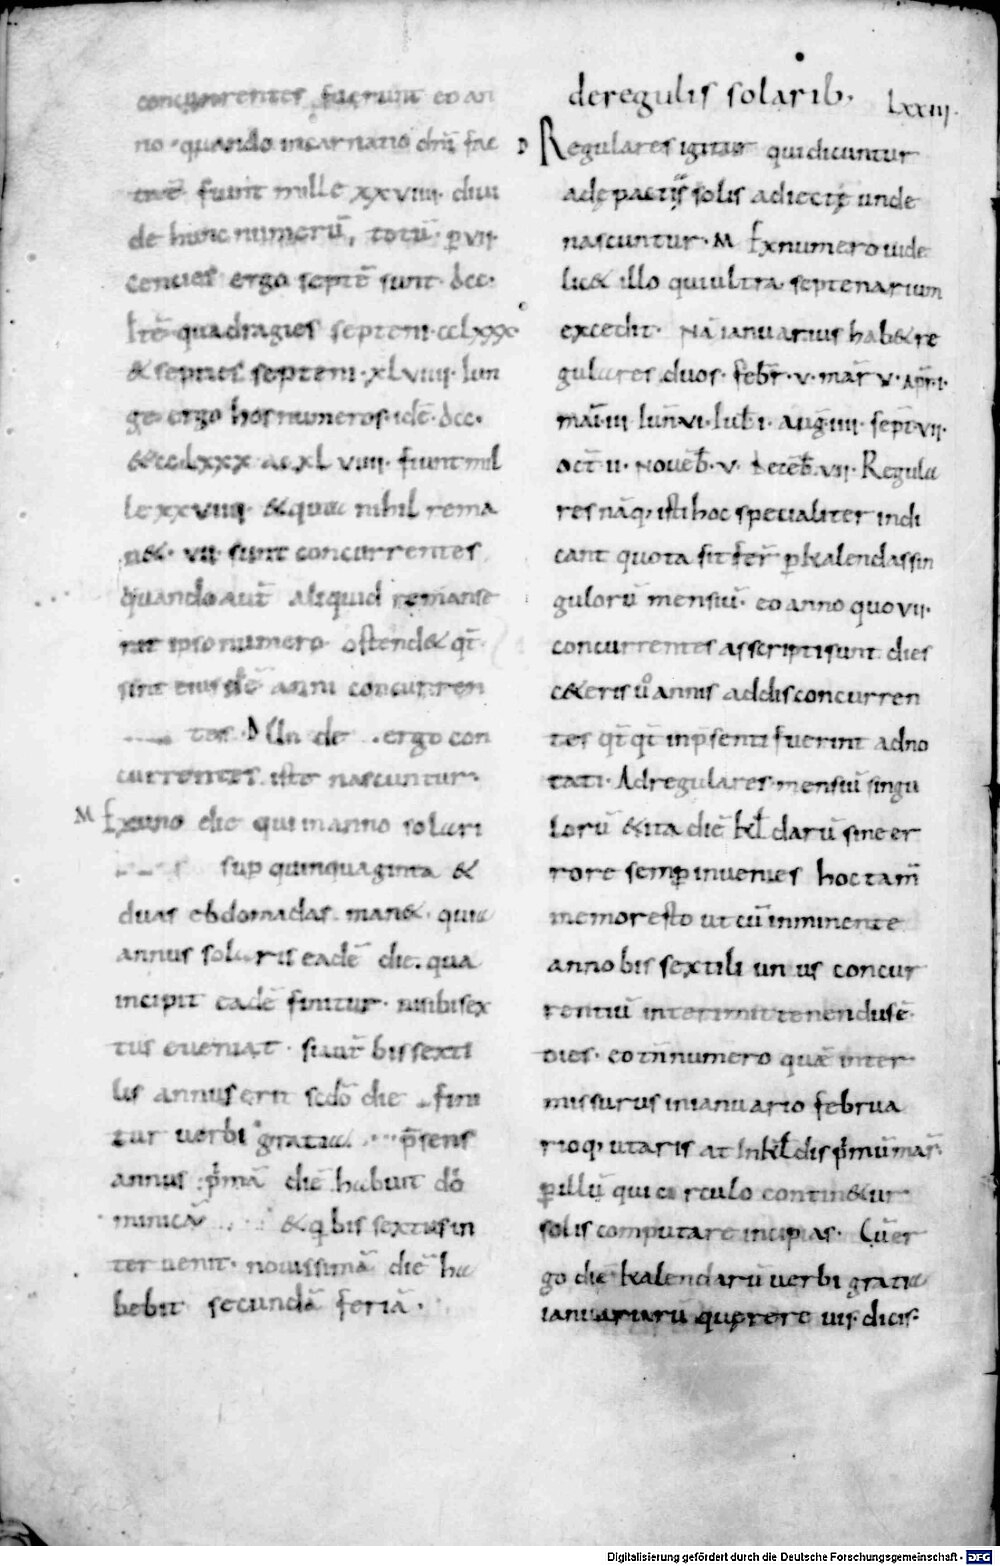 concurrentes fuerunt eo an
no · quando incarnatio dn̄i fue
fuıit mille xxviiii · diui
de hunc numerū, totū · ꝑ vii·
cencies ergo septē sunt · dcc·
Itē quadragies septeni · cclxxx·
& septies septeni · xlviiii · Iun
ge ergo hos numeros · idē · dcc·
& cclxxx ac xl viiii · fiunt mil
le xxviiii · & quia nihil rema
n& · vii · sunt concurrentes
quando aut̄ aliquid remanse
rit ipso numero ostend& qt̄·
sint eiusdē anni concurren
tes · D Un de ergo con
currentes iste nascuntur·
M Ex uno die qui in anno solari
sup quinquaginta &
duas ebdomadas man& · quia
annus solaris eadē die · qua
incipit eadē finitur · nisi bisex
tus eueniat · si aut̄ bissexti
lis annus erit scdō die fini
tur uerbi gratia p̄sens
annus p̄mā diē habuit dō
minicā & q bissextus in
ter uenit · nouissimā diē ha
bebit secundā feriā ·
de regulis solarib· lxxiii·
D Regulares igitur qui dicuntur
adępactis solis adiecti unde
nascuntur · M Ex numero uide
lic& illo qui ultra septenarium
excedit · Nā ianuarius hab& re
gulares duos · febr̄ · v · mar̄ v · apr̄ · i·
mai · iii iun · vi · iul̄ i · aug · iiii · sept̄ · vii·
oct̄ ii · nouēb̄ · v · decēb̄ · vii · Regula
res nāq· isti hoc specialiter indi
cant quota sit fer̄ ꝑ kalendas sin
gulorū mensiū · eo anno quo vii·
concurrentes asscripti sunt dies
c&eris ūo annis addis concurren
tes qt̄ qt̄ in p̄senti fuerint adno
tati · Ad regulares mensiū singu
lorū & ita diē kl̄darū sine er
rore semꝑ inuenies hoc tam̄
memor esto ut cū inminente
anno bissextili un us concur
rentiū intermittendus ē·
dies · eo tn̄ numero quē inter
missurus in ianuario februa
rioq· utaris at in kl̄dis p̄mū mar̄·
ꝑ illū qui circulo contin&ur
solis computare incipias · Cū er
go diē kalendarū uerbi gratia
ianuariarū querere uis · dicis·
Digitalisierung gefördert durch die Deutsche Forschungsgemeinschaft - DFG